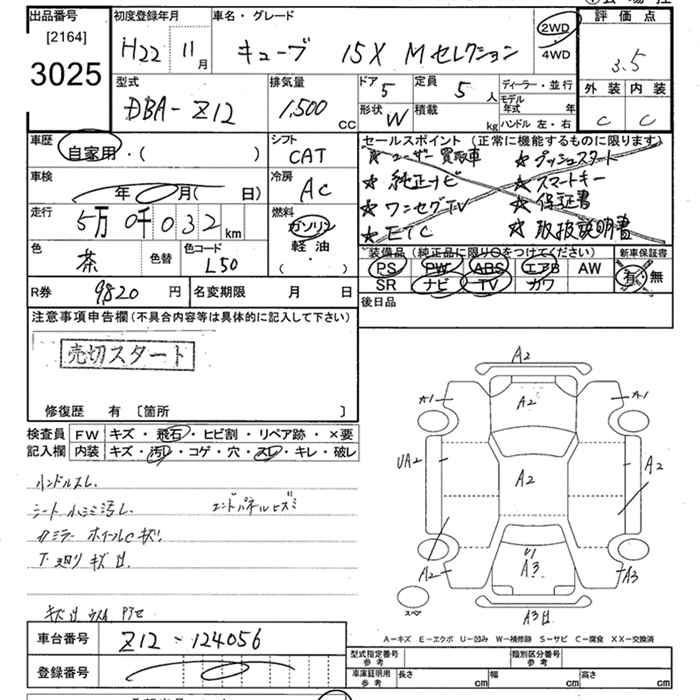 出品番号
[2164]
3025
初度登録年月
H22 11 月
車名・グレード
キューブ 15X Mセレクション
2WD
4WD
評価点
3.5
外装 内装
C C
型式
DBA-Z12
排気量
1,500 CC
ドア 5
形状 W
定員 5 人
積載 kg
ディーラー・並行
モデル年式 年
ハンドル 左・右
車歴
自家用・( )
シフト
CAT
車検
年 0 月( 日)
冷房
AC
走行
5万0千032 km
燃料
ガソリン
軽油・
( )
色
茶
色替
色コード
L50
セールスポイント(正常に機能するものに限ります)
☆ユーザー買取車 ☆プッシュスタート
☆純正ナビ ☆スマートキー
☆ワンセグTV ☆保証書
☆ETC ☆取扱説明書
装備品(純正品に限り○をつけてください)
PS PW ABS エアB AW
SR ナビ TV カワ
新車保証書
有・無
R券 9820 円
名変期限 月 日
後日品
注意事項申告欄(不具合内容等は具体的に記入して下さい)
売切スタート
修復歴 有〔箇所 〕
検査員
記入欄
FW キズ・飛石・ヒビ割・リペア跡・×要
内装 キズ・汚レ・コゲ・穴・スレ・キレ・破レ
ハンドルスレ
シート 汚レ
エンドパネルヒズミ
ホイールCキズ
下廻り キズ サビ
A2
A2
A1
A1
UA2
A2
A2
A2
U1
A3
A3
スペア
A-キズ E-エクボ U-凹み W-補修跡 S-サビ C-腐食 XX-交換済
車台番号 Z12-124056
登録番号
型式指定番号
参考
類別区分番号
参考
車庫証明用
参考
長さ cm
幅 cm
高さ cm